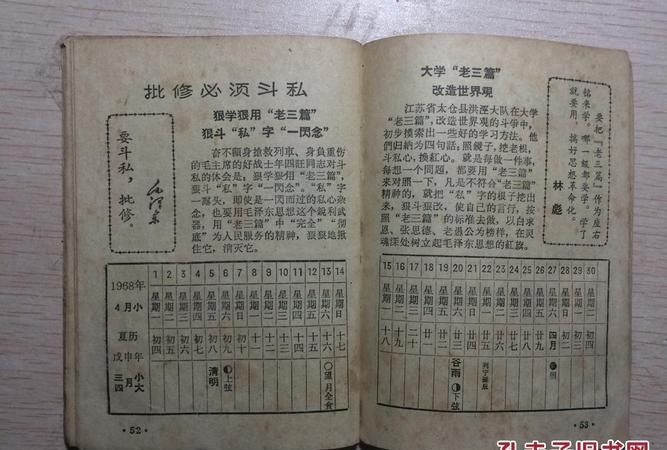 批修必须斗私
狠学狠用“老三篇”
狠斗“私”字“一闪念”
要斗私，批修。
毛泽东
奋不顾身抢救列车、身负重伤
的毛主席的好战士年四旺同志对斗
私的体会是：狠学狠用“老三篇”，
狠斗“私”字“一闪念”。“私”字
一露头，即使是一闪而过的私心杂
念，也要用毛泽东思想这个锐利武
器，用“老三篇”中“完全”“彻
底”为人民服务的精神，狠狠地揪
住它，消灭它。
1968年 4月小
1 2 3 4 5 6 7 8 9 10 11 12 13 14
星期一 星期二 星期三 星期四 星期五 星期六 星期日 星期一 星期二 星期三 星期四 星期五 星期六 星期日
夏历戊申年 三月小 四月大
初四 初五 初六 初七 初八 初九 初十 十一 十二 十三 十四 十五 十六 十七
清明 上弦 望 月全食
·52·
大学“老三篇”
改造世界观
江苏省太仓县洪泾大队在大学
“老三篇”，改造世界观的斗争中，
初步摸索出一些好的学习方法。他
们归纳为四句话：照镜子，挖老根，
斗私心，换红心。就是每做一件事，
每想一个问题，都要用“老三篇”
来对照一下，凡是不符合“老三篇”
精神的，就把“私”字的根子挖出
来，狠斗狠改，使自己的言行，按
照“老三篇”的标准去做，以白求
恩、张思德、老愚公为榜样，在灵
魂深处树立起毛泽东思想的红旗。
要把“老三篇”作为座右
铭来学。哪一级都要学。学了
就要用，搞好思想革命化。
林彪
15 16 17 18 19 20 21 22 23 24 25 26 27 28 29 30
星期一 星期二 星期三 星期四 星期五 星期六 星期日 星期一 星期二 星期三 星期四 星期五 星期六 星期日 星期一 星期二
十八 十九 二十 廿一 廿二 廿三 廿四 廿五 廿六 廿七 廿八 廿九 四月 初二 初三 初四
谷雨 下弦 列宁诞辰 朔
·53·
孔夫子旧书网